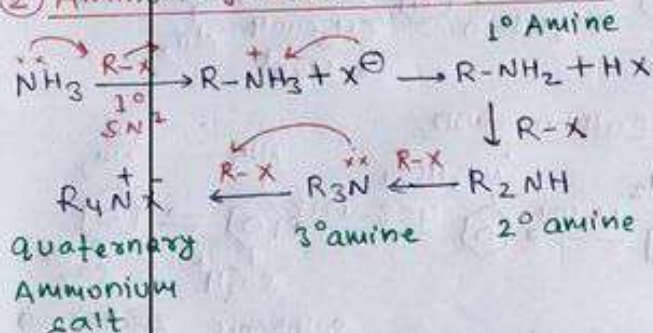 ②
1° Amine
N̈H3 R-X 1° SN² → R-N⁺H3 + X⊖ → R-NH2 + HX
↓ R-X
R4N⁺X⁻ ← R-X R3N ← R-X R2NH
quaternary Ammonium salt
3° amine
2° amine